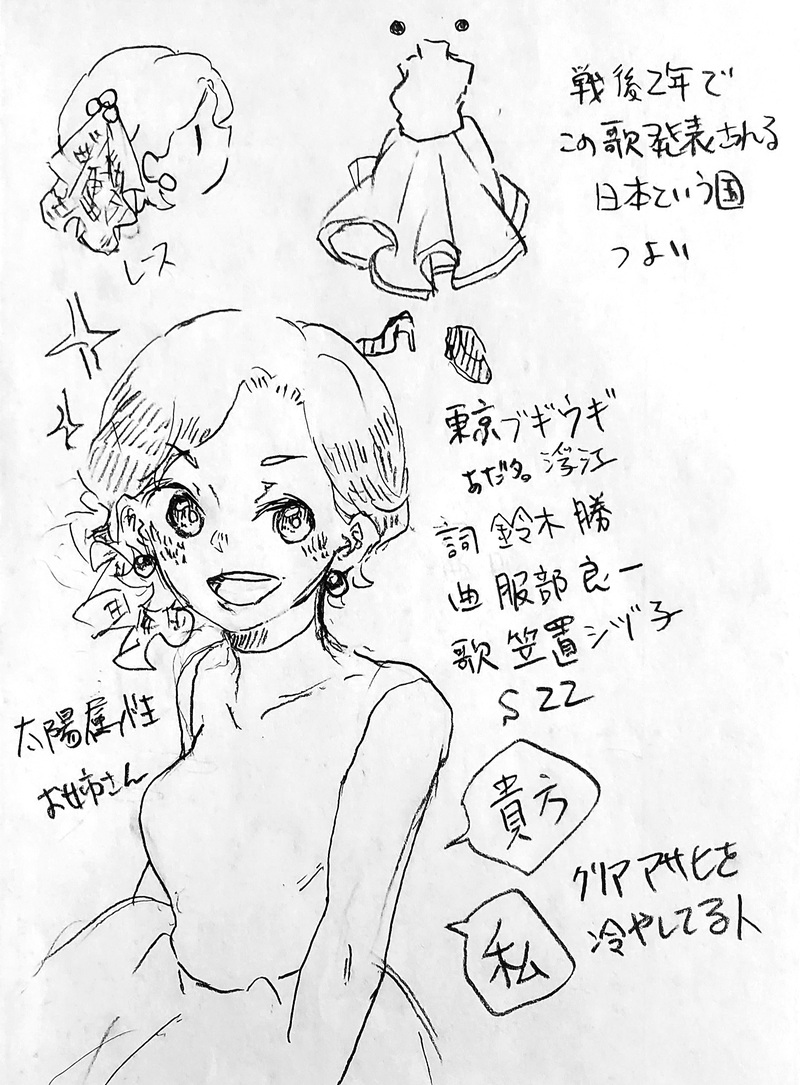 戦後2年で
この歌発表される
日本という国
つよい
レース
東京ブギウギ
あだ名。浮江
詞 鈴木 勝
曲 服部 良一
歌 笠置シヅ子
S22
太陽属性
お姉さん
貴方
クリアアサヒを
冷やしてる人
私